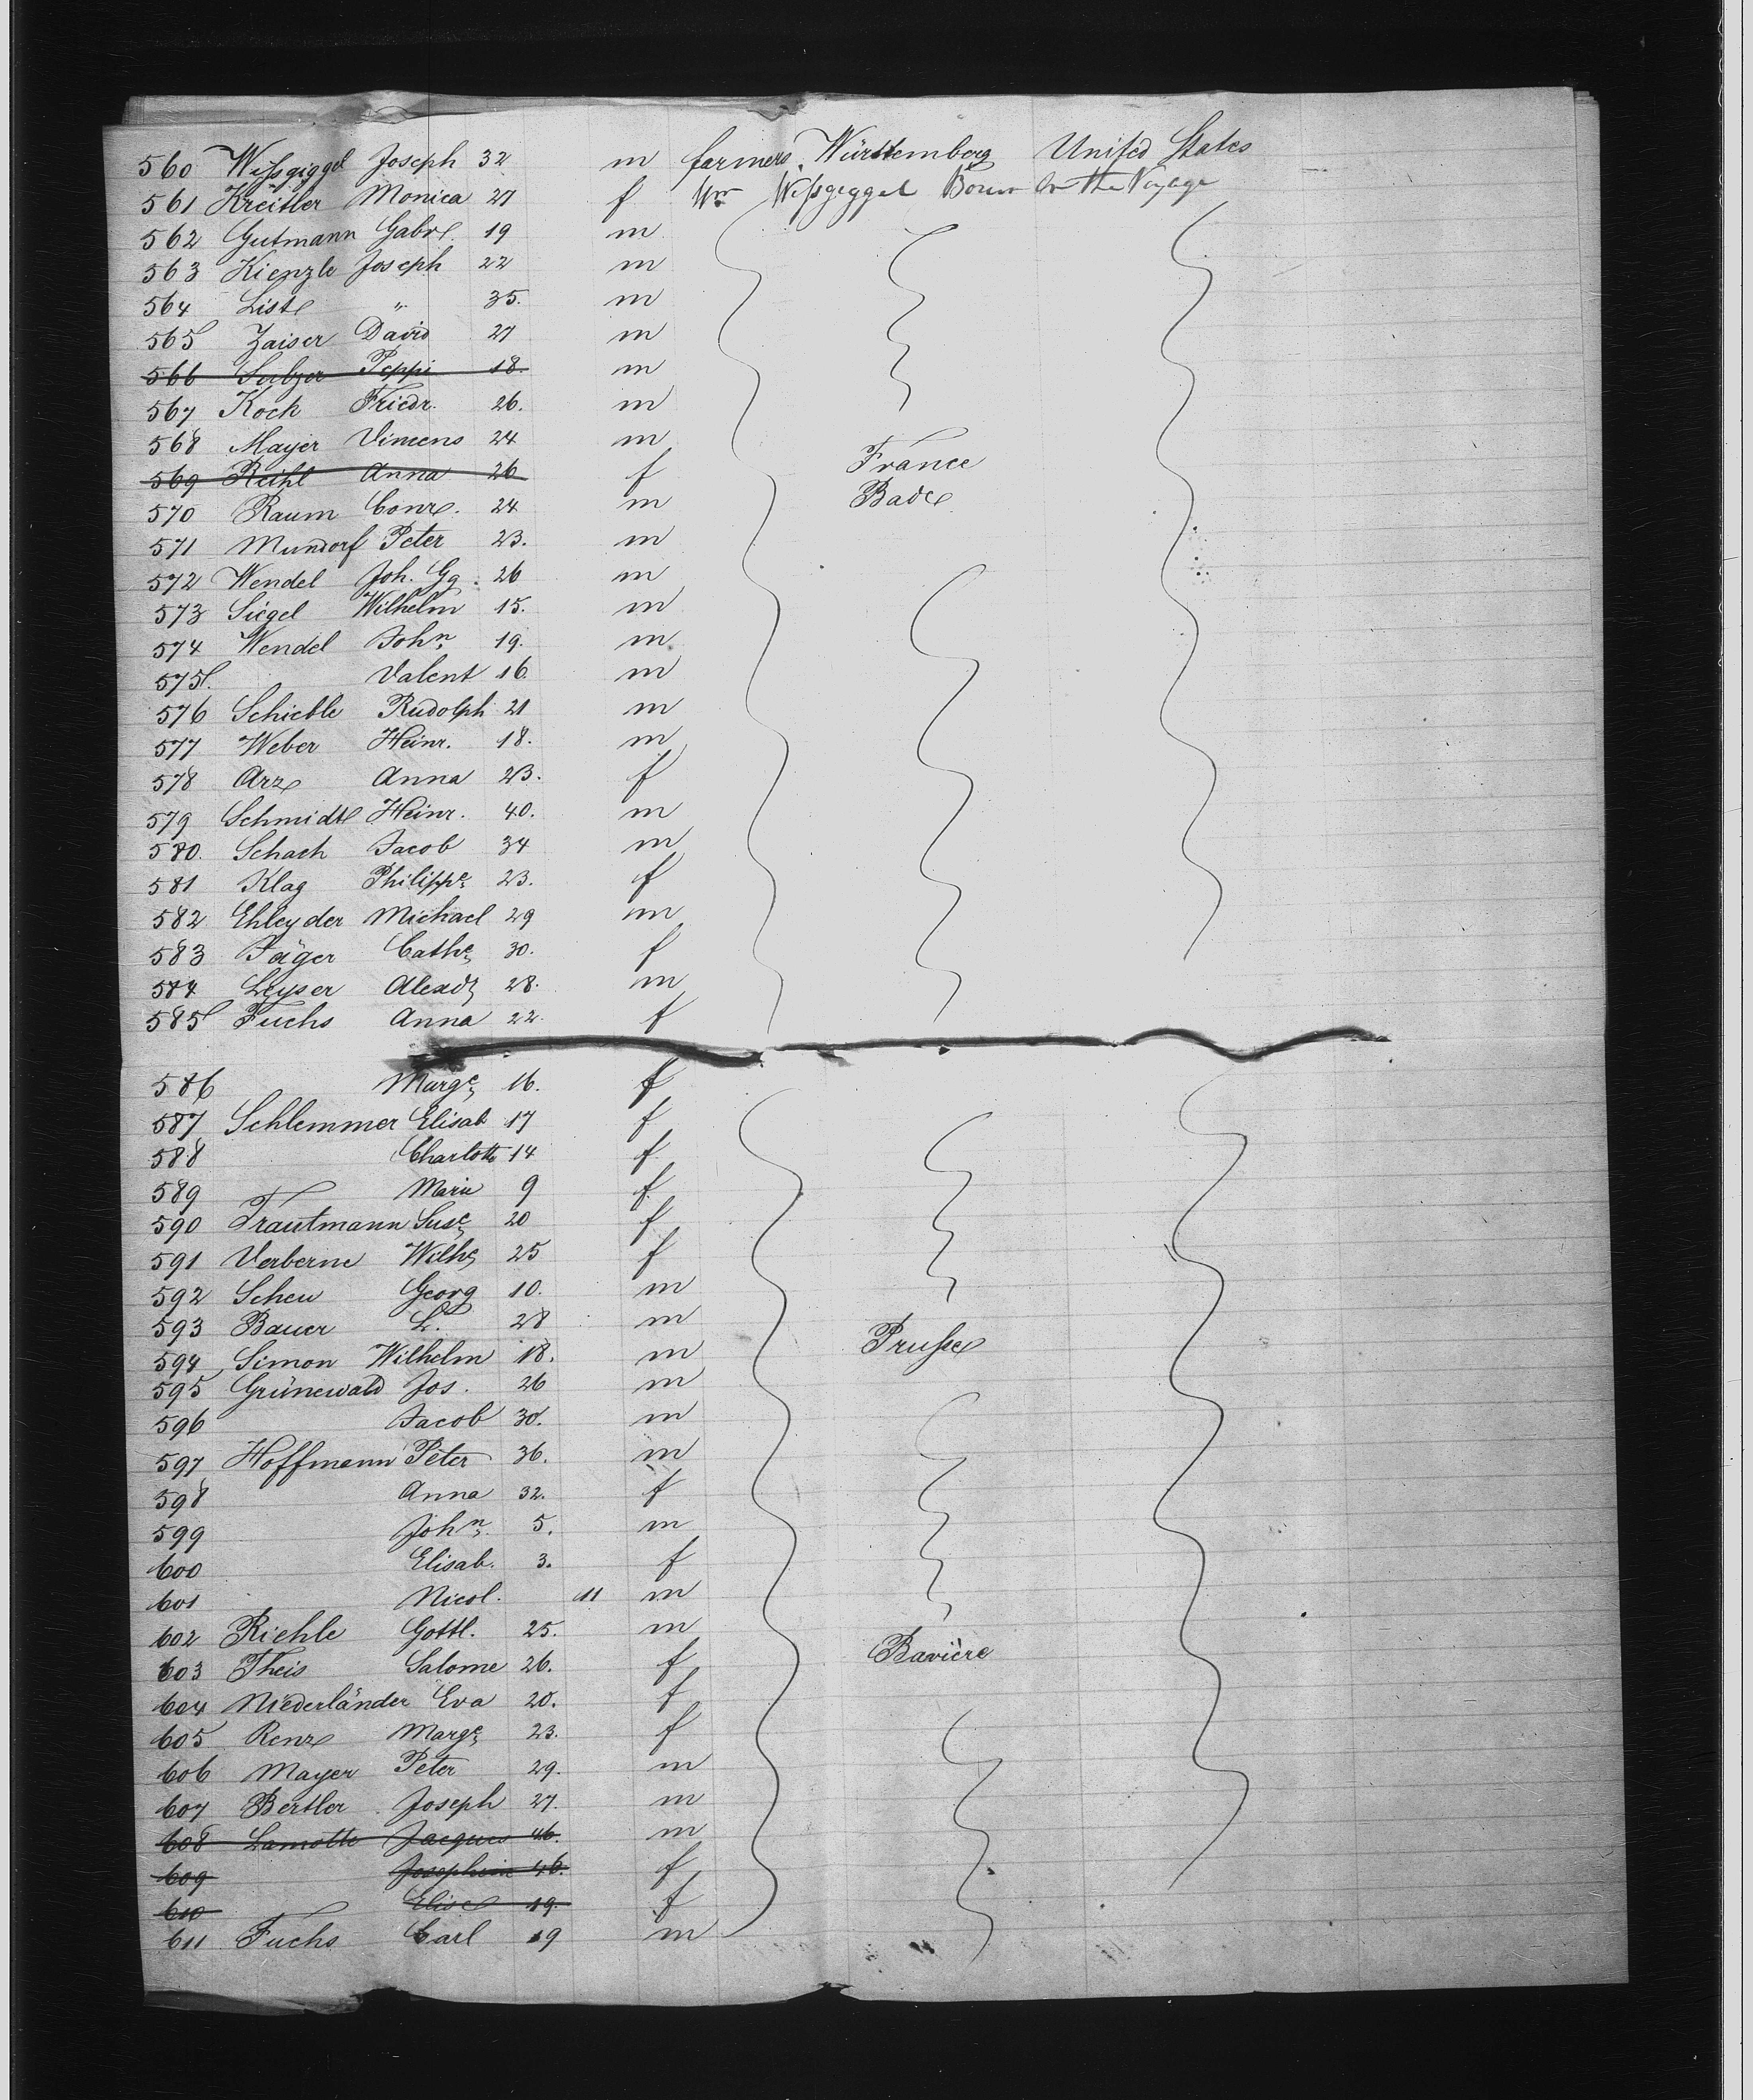 560 Weſsgiggel Joseph 32 m farmers Württemberg United States
561 Kreitler Monica 27 f Wm Weſsgeggel Born on the Voyage
562 Gutmann Gabrl. 19 m
563 Kienzle Joseph 22 m
564 List " 35. m
565 Zaiser David 27 m
566 Sulzer Peppi 18. m
567 Koch Friedr. 26. m
568 Mayer Vincens 24 m
569 Reihl Anna 26 f France
570 Raum Conr. 24 m Bade
571 Mundorf Peter 23. m
572 Wendel Joh. Gg. 26 m
573 Siegel Wilhelm 15. m
574 Wendel John 19. m
575. Valent 16. m
576 Schieble Rudolph 21 m
577 Weber Heinr. 18. m
578 Arz Anna 23. f
579 Schmidt Heinr. 40. m
580. Schach Jacob 34 m
581 Klag Philippe 23. f
582 Ehleyder Michael 29 m
583 Jäger Cathe 30. f
584 Leyser Alexd 28. m
585 Fuchs Anna 22. f
586 Marge 16. f
587 Schlemmer Elisab 17 f
588 Charlotte 14 f
589 Marie 9 f
590 Trautmann Suse 20 f
591 Verberne Wilhe 25 f
592 Scheu Georg 10. m
593 Bauer L. 28 m
594 Simon Wilhelm 18. m Pruſse
595 Grünewald Jos. 26 m
596 Jacob 30. m
597 Hoffmann Peter 36. m
598 Anna 32. f
599 John 5. m
600 Elisab. 3. f
601 Nicol. 11 m
602 Riehle Gottl. 25. m
603 Theis Salome 26. f Bavière
604 Niederländer Eva 20. f
605 Renz Marge 23. f
606 Mayer Peter 29. m
607 Bertler Joseph 27. m
608 Lamotte Jacques 46. m
609 Josephine 46. f
610 Elise 19. f
611 Fuchs Carl 19 m